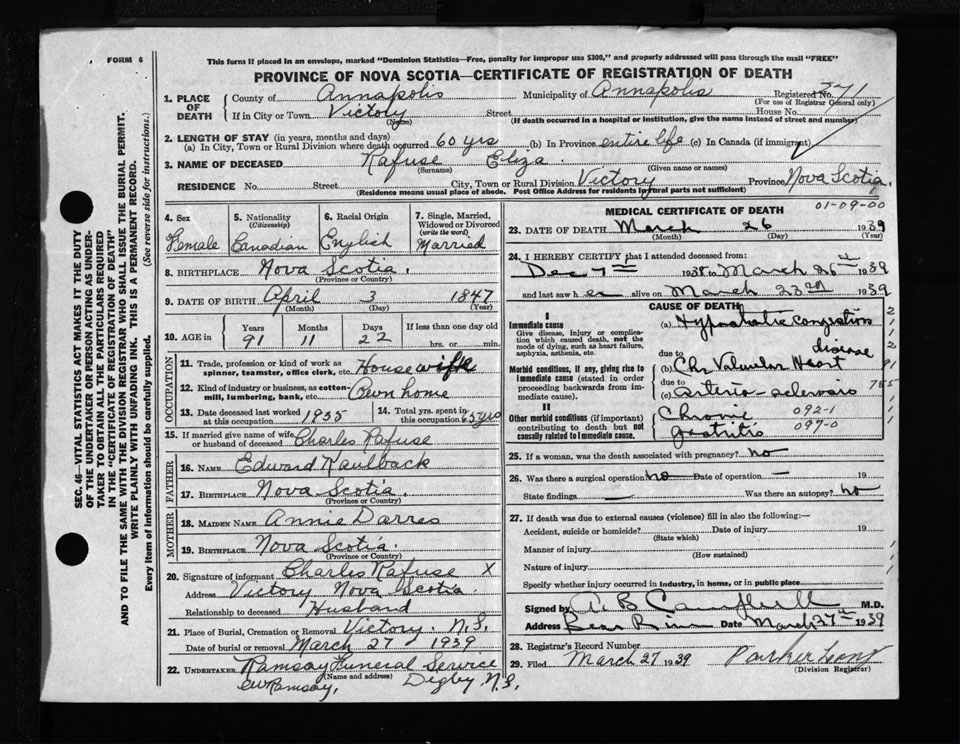 FORM 6
This form if placed in an envelope, marked "Dominion Statistics—Free, penalty for improper use $300," and properly addressed will pass through the mail "FREE"
PROVINCE OF NOVA SCOTIA—CERTIFICATE OF REGISTRATION OF DEATH
1. PLACE OF DEATH County of Annapolis Municipality of Annapolis Registered No. 371
(For use of Registrar General only)
If in City or Town Victory Street House No.
(Name) (If death occurred in a hospital or institution, give the name instead of street and number)
2. LENGTH OF STAY (in years, months and days)
(a) In City, Town or Rural Division where death occurred 60 yrs (b) In Province entire life (c) In Canada (if immigrant)
3. NAME OF DECEASED Rafuse Eliza
(Surname) (Given name or names)
RESIDENCE No. Street City, Town or Rural Division Victory Province Nova Scotia.
(Residence means usual place of abode. Post Office Address for Residents in rural parts not sufficient)
4. Sex Female
5. Nationality (Citizenship) Canadian
6. Racial Origin English
7. Single, Married, Widowed or Divorced (write the word) Married
8. BIRTHPLACE Nova Scotia.
(Province or Country)
9. DATE OF BIRTH April 3 1847
(Month) (Day) (Year)
10. AGE in Years 91 Months 11 Days 22 If less than one day old
hrs. or min.
OCCUPATION
11. Trade, profession or kind of work as spinner, teamster, office clerk, etc. Housewife
12. Kind of industry or business, as cotton-mill, lumbering, bank, etc. Own home
13. Date deceased last worked at this occupation 1935 14. Total yrs. spent in this occupation 65 yrs
15. If married give name of wife or husband of deceased Charles Rafuse
FATHER
16. NAME Edward Kaulback
17. BIRTHPLACE Nova Scotia.
(Province or Country)
MOTHER
18. MAIDEN NAME Annie Darres
19. BIRTHPLACE Nova Scotia.
(Province or Country)
20. Signature of informant Charles Rafuse X
Address Victory Nova Scotia
Relationship to deceased Husband
21. Place of Burial, Cremation or Removal Victory. N.S.
Date of burial or removal March 27 1939
22. UNDERTAKER Ramsay Funeral Service
(Name and address)
Ramsay, Digby N.S.
MEDICAL CERTIFICATE OF DEATH 01-09-00
23. DATE OF DEATH March 26 1939
(Month) (Day) (Year)
24. I HEREBY CERTIFY that I attended deceased from:
Dec 7th 1938 to March 26th 1939
and last saw her alive on March 23rd 1939
CAUSE OF DEATH
I
Immediate cause
Give disease, injury or complication which caused death, not the mode of dying, such as heart failure, asphyxia, asthenia, etc.
(a) Hypostatic congestion
due to
Morbid conditions, if any, giving rise to immediate cause (stated in order proceeding backwards from immediate cause).
(b) Chr Valvular Heart disease
due to
(c) arterio-sclerosis
II
Other morbid conditions (if important) contributing to death but not causally related to immediate cause.
Chronic 092-1
gastritis 097-0
25. If a woman, was the death associated with pregnancy? no
26. Was there a surgical operation no Date of operation — 19
State findings — Was there an autopsy? no
27. If death was due to external causes (violence) fill in also the following:—
Accident, suicide or homicide? Date of injury 19
(State which)
Manner of injury
(How sustained)
Nature of injury
Specify whether injury occurred in industry, in home, or in public place
Signed by A B Campbell M.D.
Address Bear River Date March 27th 1939
28. Registrar's Record Number
29. Filed March 27 1939
(Division Registrar)
SEC. 46—VITAL STATISTICS ACT MAKES IT THE DUTY
OF THE UNDERTAKER OR PERSON ACTING AS UNDER-
TAKER TO OBTAIN ALL THE PARTICULARS REQUIRED
IN THE "CERTIFICATE OF REGISTRATION OF DEATH"
AND TO FILE THE SAME WITH THE DIVISION REGISTRAR WHO SHALL ISSUE THE BURIAL PERMIT.
WRITE PLAINLY WITH UNFADING INK. THIS IS A PERMANENT RECORD.
Every item of information should be carefully supplied. (See reverse side for instructions.)